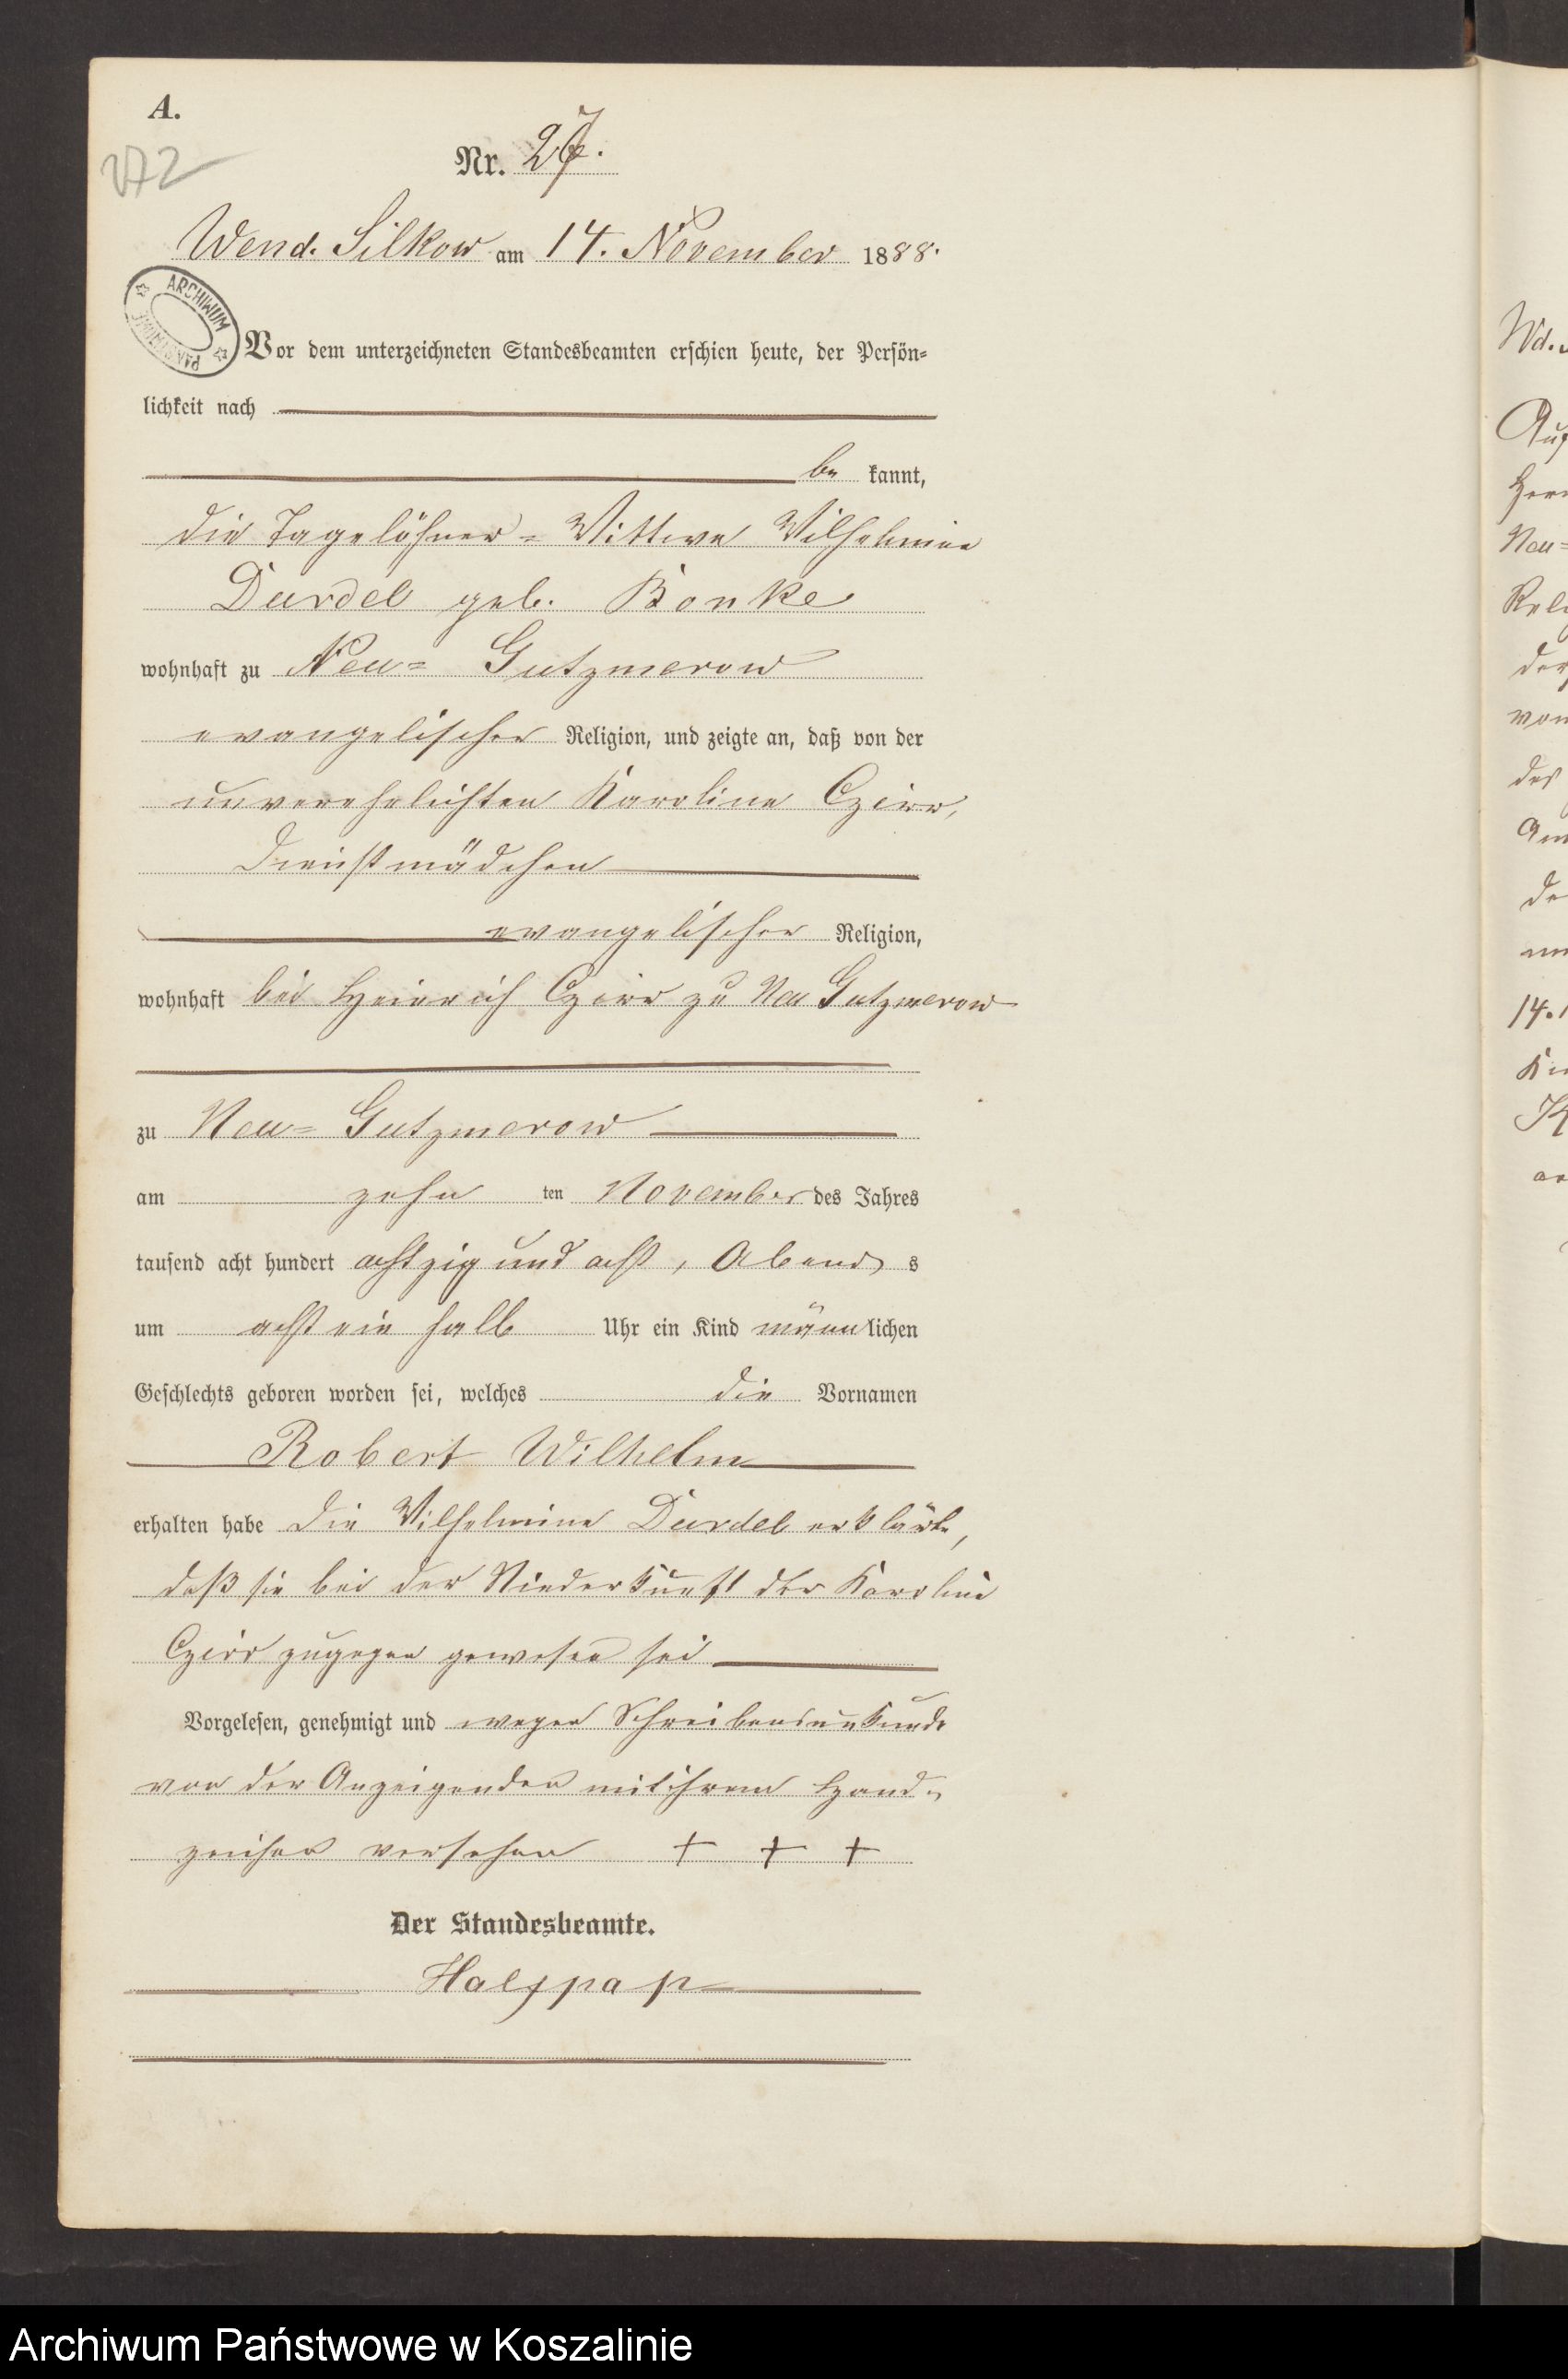 A.
272
Nr. 27.
Wend. Silkow am 14. November 1888.
ARCHIWUM
Vor dem unterzeichneten Standesbeamten erschien heute, der Persön-
lichkeit nach
be kannt,
die Tagelöhner-Wittwe Wilhelmine
Durdel geb. Bonke
wohnhaft zu Neu-Gutzmerow
evangelischer Religion, und zeigte an, daß von der
unverehelichten Karoline Czirr,
Dienstmädchen
evangelischer Religion,
wohnhaft bei Heinrich Czirr zu Neu Gutzmerow
zu Neu-Gutzmerow
am zehn ten November des Jahres
tausend acht hundert achtzig und acht, Abend s
um acht ein halb Uhr ein Kind männlichen
Geschlechts geboren worden sei, welches die Vornamen
Robert Wilhelm
erhalten habe die Wilhelmine Durdel erklärte,
daß sie bei der Niederkunft der Karoline
Czirr zugegen gewesen sei
Vorgelesen, genehmigt und wegen Schreibensunkunde
von der Anzeigenden mit ihrem Hand-
zeichen versehen + + +
Der Standesbeamte.
Halfpap
Wd.
Neu-
14.
Archiwum Państwowe w Koszalinie